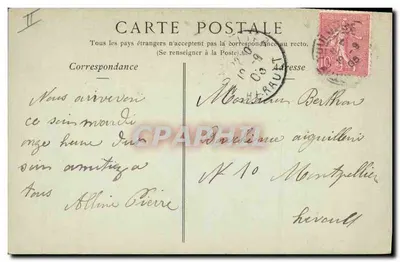 II
CARTE POSTALE
Tous les pays étrangers n'acceptent pas la correspondance au recto.
(Se renseigner à la Poste)
Correspondance
Adresse
Nous
ce soir mardi
onze heure du
soir amitiez a
tous
Alline Pierre
Monsieur Berthon
Boulevard aiguillerie
N 10 Montpellier
herault
HERAULT
CPRCARTES